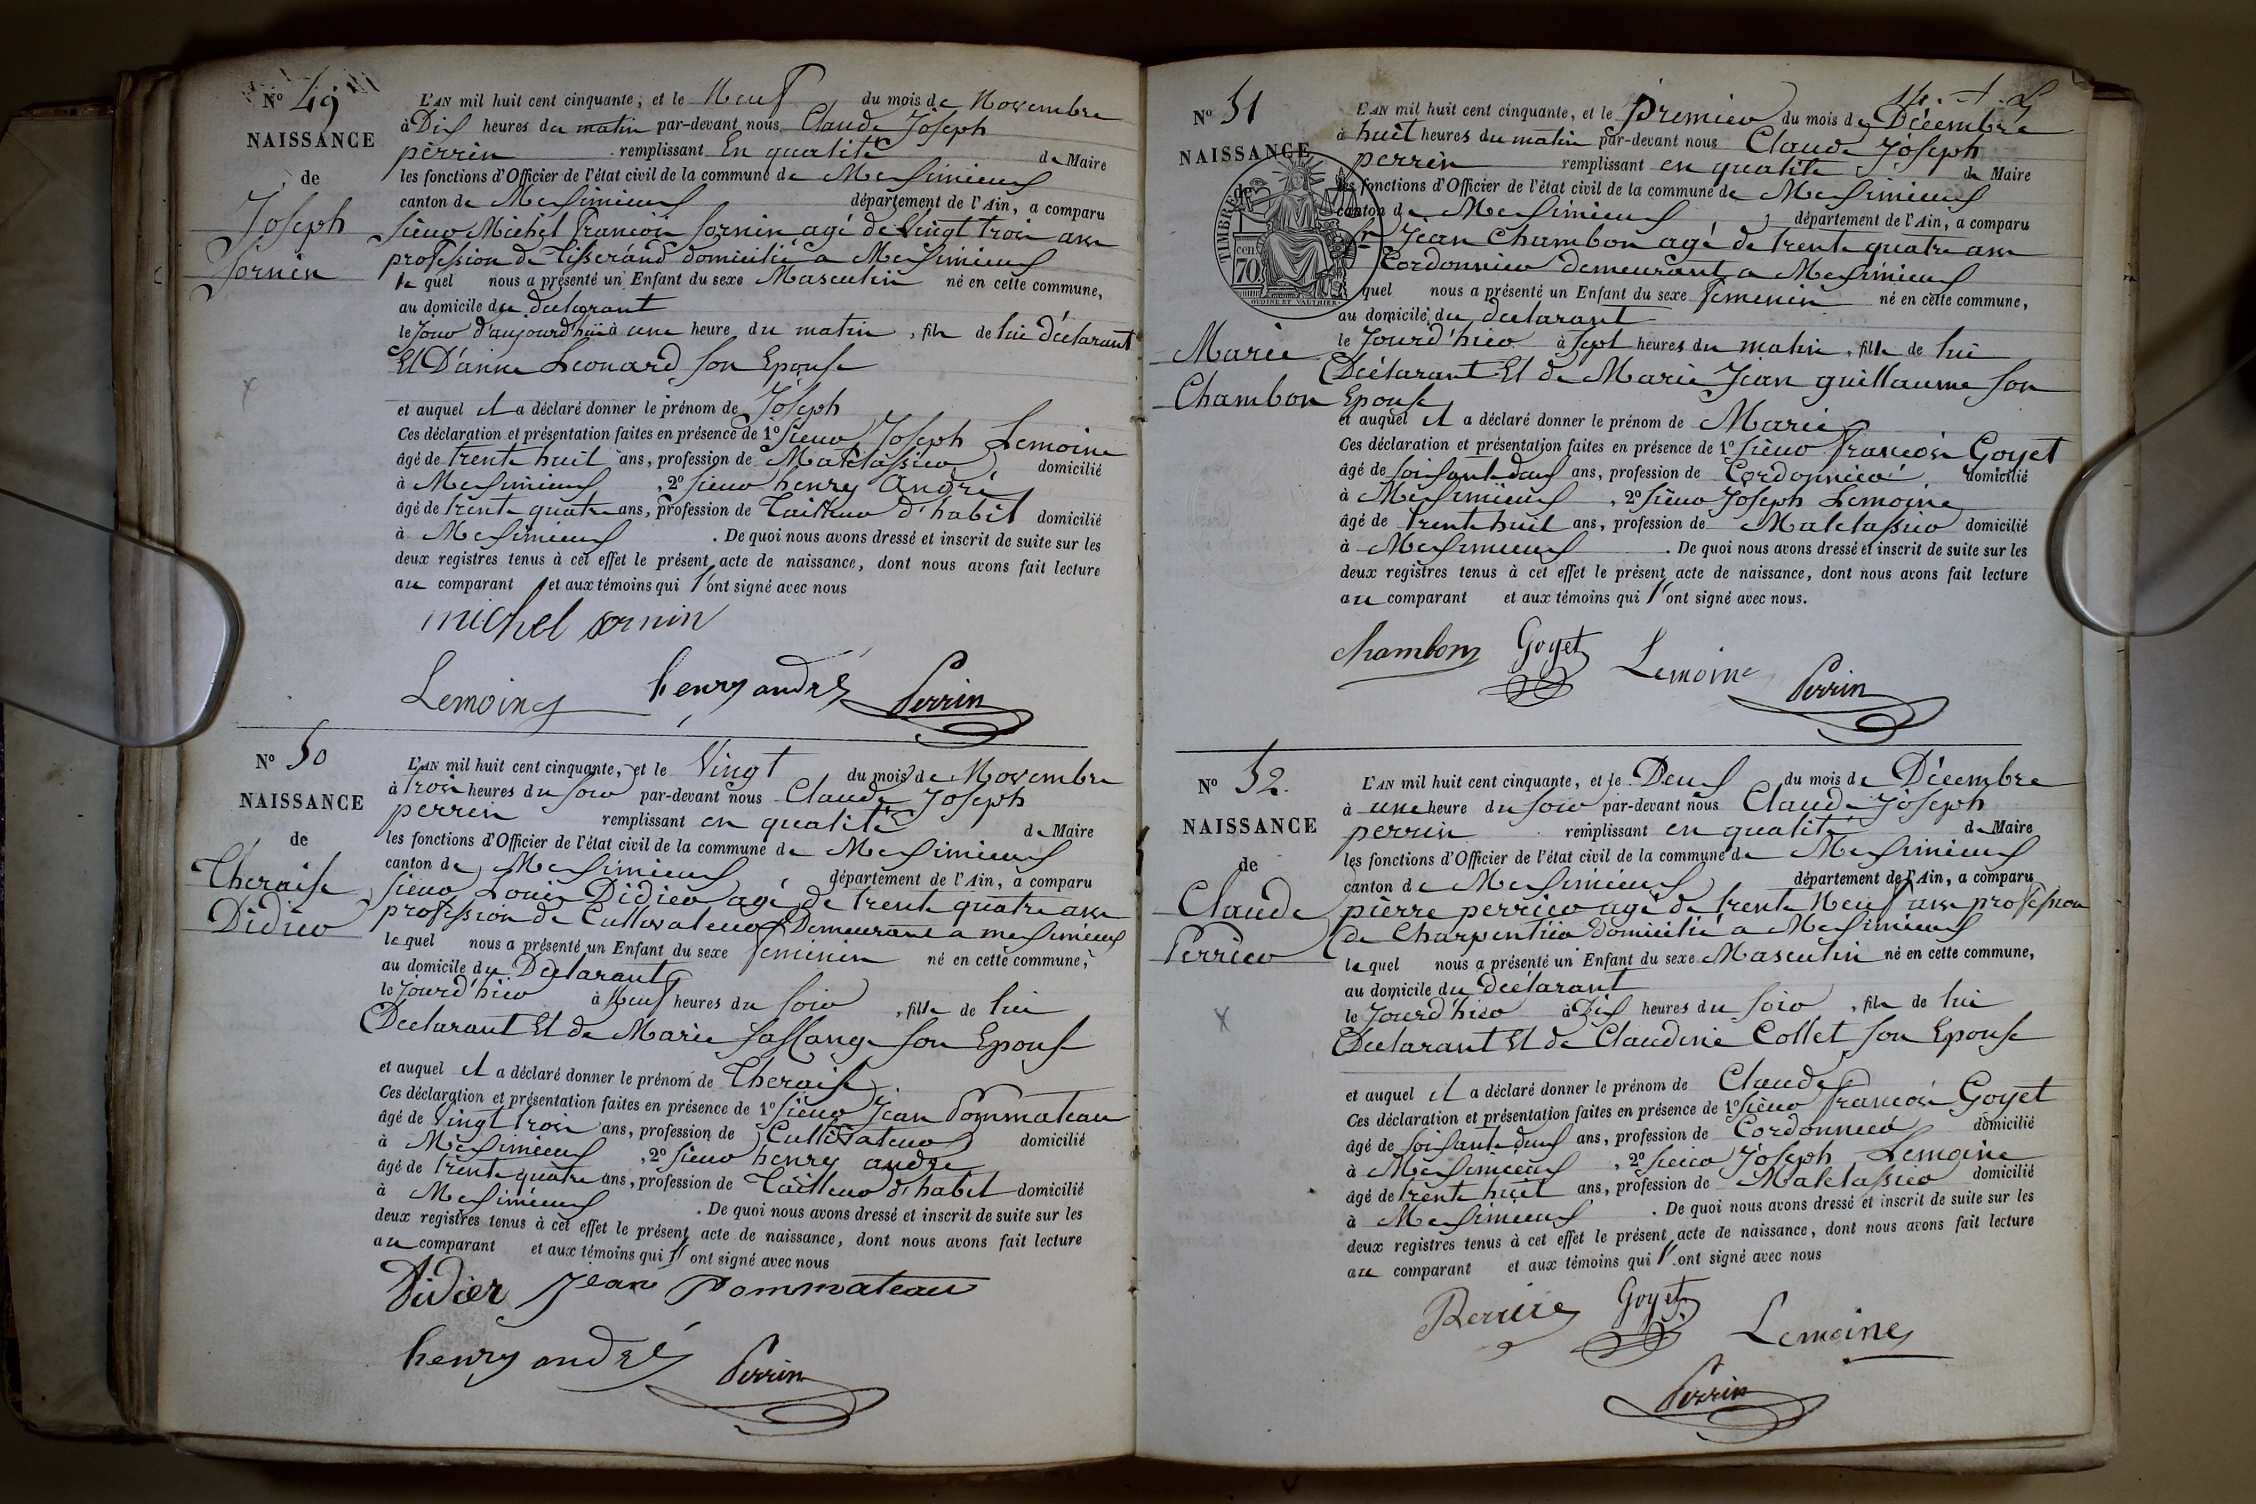 N° 49
NAISSANCE
de
Joseph
Sornin
L'AN mil huit cent cinquante, et le Neuf du mois de Novembre
à Dix heures du matin par-devant nous Claude Joseph
perrin remplissant En qualité de Maire
les fonctions d'Officier de l'état civil de la commune de Meximieux
canton de Meximieux département de l'Ain, a comparu
sieur Michel François Sornin agé de Vingt trois ans
profession de Tisserand domicilié a Meximieux
le quel nous a présenté un Enfant du sexe Masculin né en cette commune,
au domicile du declarant
le Jour d'aujourd'hui à une heure du matin, fils de lui déclarant
Et D'anne Leonard son Epouse
et auquel il a déclaré donner le prénom de Joseph
Ces déclaration et présentation faites en présence de 1° sieur Joseph Lemoine
âgé de trente huit ans, profession de Matelassier domicilié
à Meximieux, 2° sieur henry André
âgé de trente quatre ans, profession de Tailleur d'habit domicilié
à Meximieux. De quoi nous avons dressé et inscrit de suite sur les
deux registres tenus à cet effet le présent acte de naissance, dont nous avons fait lecture
au comparant et aux témoins qui l'ont signé avec nous
michel sornin
Lemoine henry andré Perrin
N° 50
NAISSANCE
de
Theraise
Didier
L'AN mil huit cent cinquante, et le Vingt du mois de Novembre
à trois heures du soir par-devant nous Claude Joseph
perrin remplissant en qualité de Maire
les fonctions d'Officier de l'état civil de la commune de Meximieux
canton de Meximieux département de l'Ain, a comparu
sieur Louis Didier agé de trente quatre ans
profession de Cultivateur Demeurant a meximieux
le quel nous a présenté un Enfant du sexe feminin né en cette commune,
au domicile du Déclarant
le Jourd'hier à Neuf heures du soir, fille de lui
Declarant Et de Marie son Epouse
et auquel il a déclaré donner le prénom de Theraise
Ces déclaration et présentation faites en présence de 1° sieur Jean Pommateau
âgé de vingt trois ans, profession de Cultivateur domicilié
à Meximieux, 2° sieur henry andre
âgé de trente quatre ans, profession de Tailleur d'habit domicilié
à Meximieux. De quoi nous avons dressé et inscrit de suite sur les
deux registres tenus à cet effet le présent acte de naissance, dont nous avons fait lecture
au comparant et aux témoins qui l'ont signé avec nous
Didier Jean Pommateau
henry andré Perrin
N° 51
NAISSANCE
de
Marie
Chambon
TIMBRE
cen
70
L'AN mil huit cent cinquante, et le premier du mois de Décembre
à huit heures du matin par-devant nous Claude Joseph
perrin remplissant en qualité de Maire
les fonctions d'Officier de l'état civil de la commune de Meximieux
canton de Meximieux, département de l'Ain, a comparu
sr Jean Chambon agé de trente quatre ans
Cordonnier demeurant a Meximieux
quel nous a présenté un Enfant du sexe femenin né en cette commune,
au domicile du declarant
le Jourd'hier à sept heures du matin, fille de lui
Déclarant Et de Marie Jean guillaume son
Epouse
et auquel il a déclaré donner le prénom de Marie
Ces déclaration et présentation faites en présence de 1° sieur François Goyet
âgé de soixante deux ans, profession de Cordonnier domicilié
à Meximieux, 2° sieur Joseph Lemoine
âgé de trente huit ans, profession de Matelassier domicilié
à Meximieux. De quoi nous avons dressé et inscrit de suite sur les
deux registres tenus à cet effet le présent acte de naissance, dont nous avons fait lecture
au comparant et aux témoins qui l'ont signé avec nous.
chambon Goyet Lemoine Perrin
N° 52.
NAISSANCE
de
Claude
Perrier
L'AN mil huit cent cinquante, et le Deux du mois de Décembre
à une heure du soir par-devant nous Claude Joseph
perrin remplissant en qualité de Maire
les fonctions d'Officier de l'état civil de la commune de Meximieux
canton de Meximieux département de l'Ain, a comparu
pierre perrier agé de trente Neuf ans profession
de Charpentier domicilié a Meximieux
le quel nous a présenté un Enfant du sexe Masculin né en cette commune,
au domicile du déclarant
le Jourd'hier à Dix heures du soir, fils de lui
Declarant Et de Claudine Collet son Epouse
et auquel il a déclaré donner le prénom de Claude
Ces déclaration et présentation faites en présence de 1° sieur François Goyet
âgé de soixante deux ans, profession de Cordonnier domicilié
à Meximieux, 2° sieur Joseph Lemoine
âgé de trente huit ans, profession de Matelassier domicilié
à Meximieux. De quoi nous avons dressé et inscrit de suite sur les
deux registres tenus à cet effet le présent acte de naissance, dont nous avons fait lecture
au comparant et aux témoins qui l'ont signé avec nous
Goyet Lemoine
Perrin